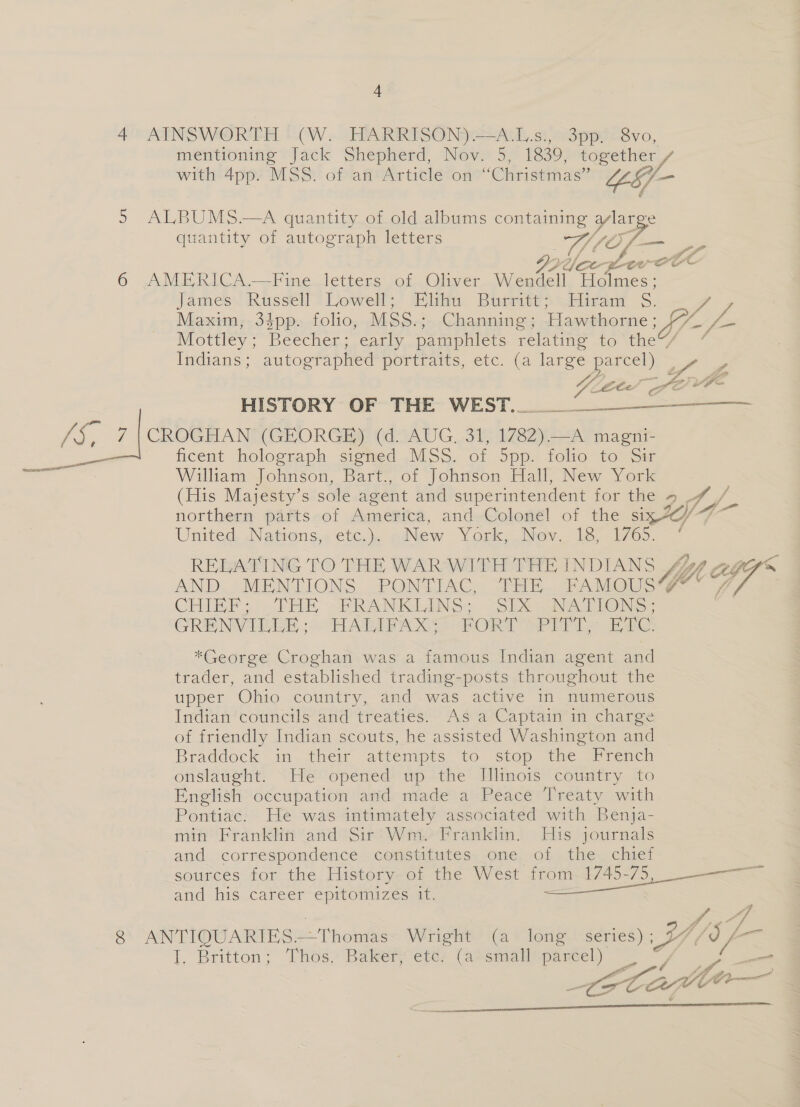 4
4 AINSWORTH (W. HARRISON).—A.L.s., 3pp. 8vo,
mentioning Jack Shepherd, Nov. 5, 1839, together
with 4pp. MSS. of an Article on “Christmas”
5 ALBUMS.—A quantity of old albums containing a large
quantity of autograph letters
6 AMERICA.—Fine letters of Oliver Wendell Holmes;
James Russell Lowell; Elihu Burritt; Hiram S.
Maxim, 34pp. folio, MSS.; Channing; Hawthorne;
Mottley; Beecher; early pamphlets relating to the
Indians; autographed portraits, etc. (a large parcel)
HISTORY OF THE WEST.
15, 7 CROGHAN (GEORGE) (d. AUG. 31, 1782).—A magni-
ficent holograph signed MSS. of 5pp. folio to Sir
William Johnson, Bart., of Johnson Hall, New York
(His Majesty’s sole agent and superintendent for the
northern parts of America, and Colonel of the six
United Nations, etc.). New York, Nov. 18, 1765.
RELATING TO THE WAR WITH THE INDIANS
AND MENTIONS PONTIAC, THE FAMOUS
CHIEF; THE FRANKLINS; SIX NATIONS;
GRENVILLE; HALIFAX; FORT PITT, ETC.
*George Croghan was a famous Indian agent and
trader, and established trading-posts throughout the
upper Ohio country, and was active in numerous
Indian councils and treaties. As a Captain in charge
of friendly Indian scouts, he assisted Washington and
Braddock in their attempts to stop the French
onslaught. He opened up the Illinois country to
English occupation and made a Peace Treaty with
Pontiac. He was intimately associated with Benja-
min Franklin and Sir Wm. Franklin. His journals
and correspondence constitutes one of the chief
sources for the History of the West from 1745-75,
and his career epitomizes it.
8 ANTIQUARIES.—Thomas Wright (a long series);
J. Britton; Thos. Baker, etc. (a small parcel)